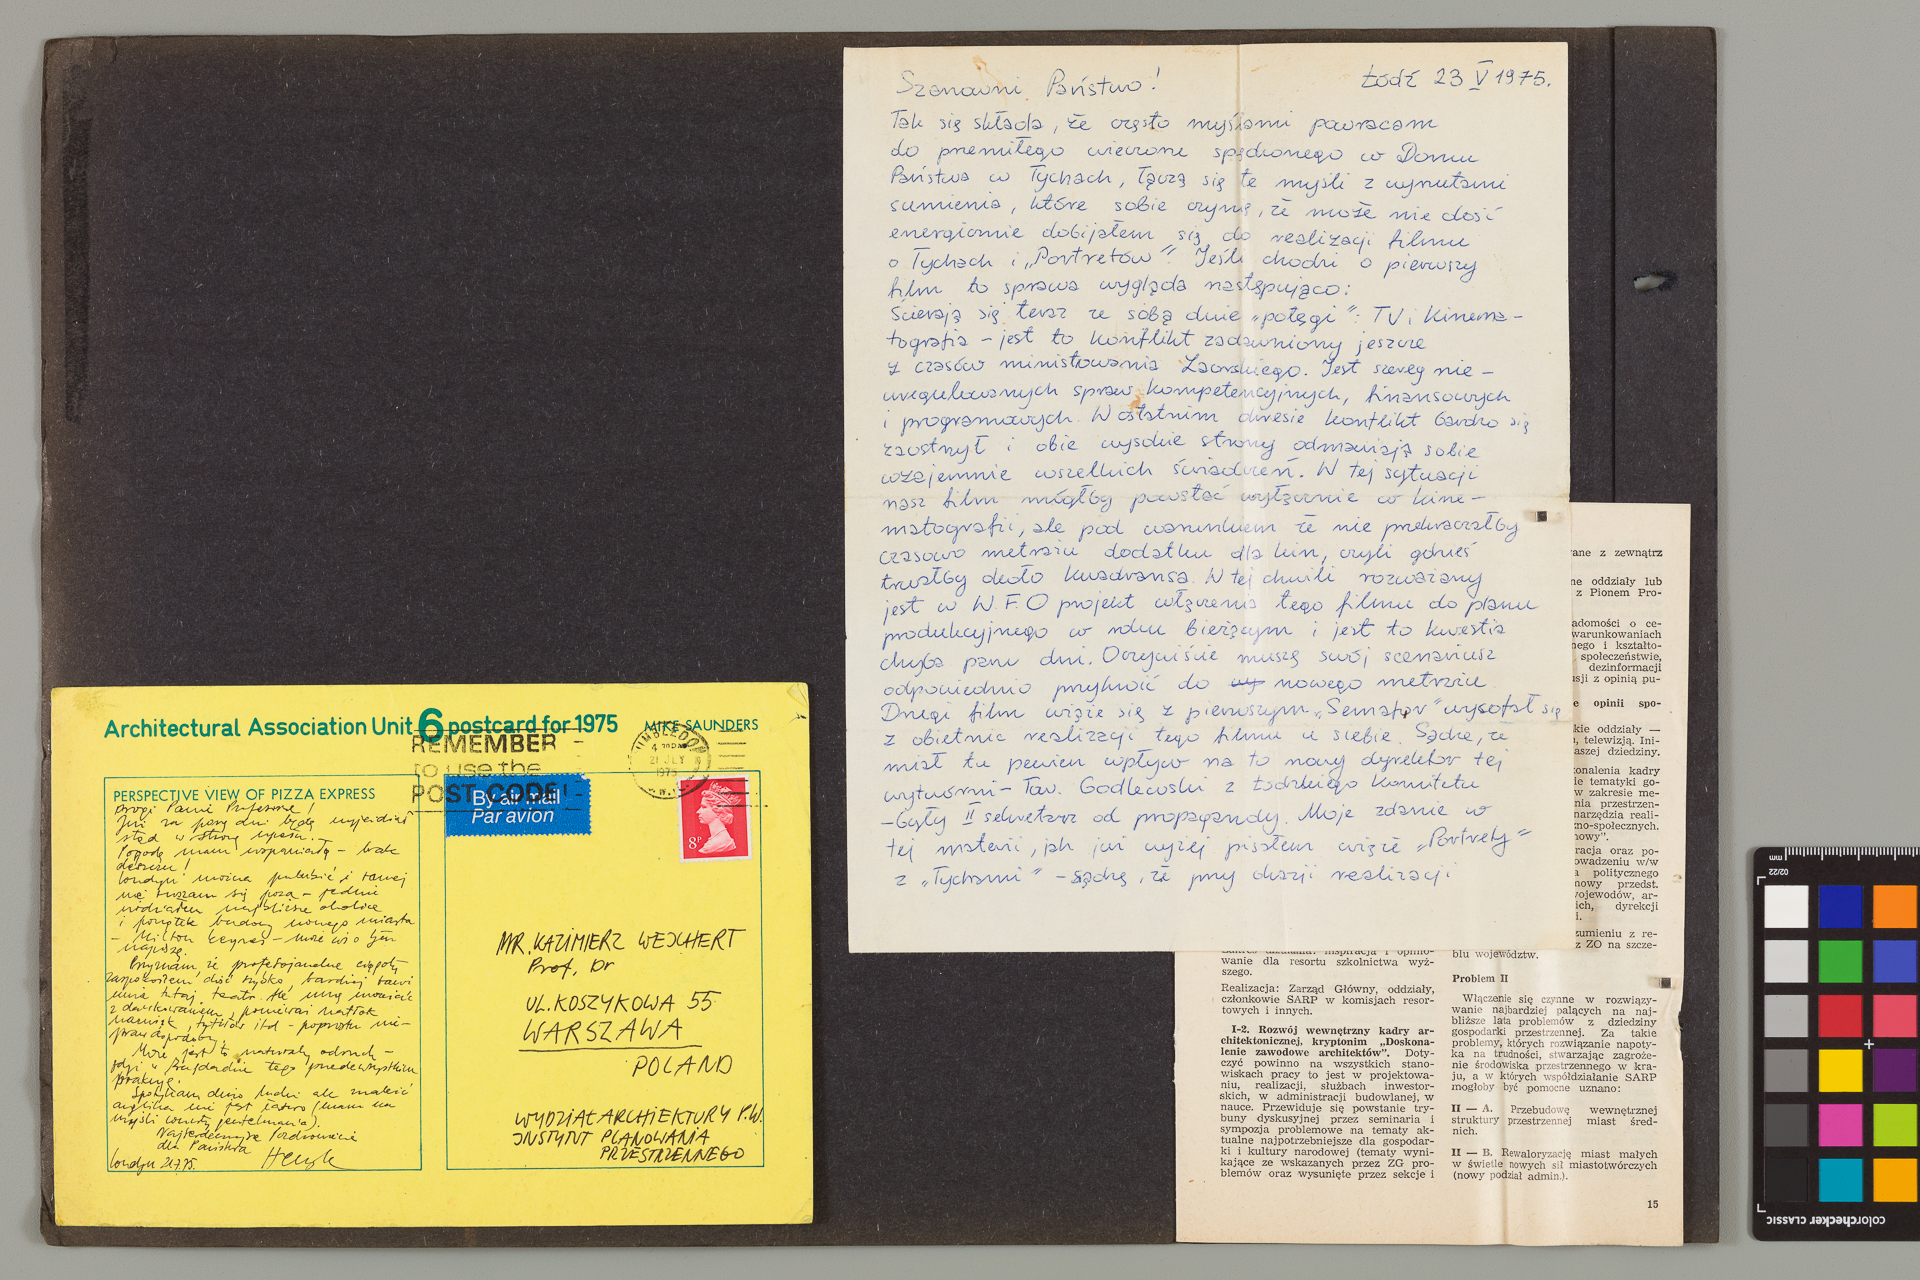 Szanowni Państwo!
Łódź 23 V 1975.
Tak się składa, że często myślami powracam
do przemiłego wieczoru spędzonego w Domu
Państwa w Tychach, łączą się te myśli z wyrzutami
sumienia, które sobie czynię, że może nie dość
energicznie dobijałem się do realizacji filmu
o Tychach i „Portretów”. Jeśli chodzi o pierwszy
film to sprawa wygląda następująco:
Ścierają się teraz ze sobą dwie „potęgi”: TV i Kinema-
tografia – jest to konflikt zadawniony jeszcze
z czasów ministrowania Zaorskiego. Jest szereg nie-
uregulowanych spraw kompetencyjnych, finansowych
i programowych. W ostatnim okresie konflikt bardzo się
zaostrzył i obie wysokie strony odmawiają sobie
wzajemnie wszelkich świadczeń. W tej sytuacji
nasz film mógłby powstać wyłącznie w kine-
matografii, ale pod warunkiem że nie przekraczałby
czasowo metrażu dodatku dla kin, czyli gdzieś
trwałby około kwadransa. W tej chwili rozważany
jest w W.F.O projekt włączenia tego filmu do planu
produkcyjnego w roku bieżącym i jest to kwestia
chyba paru dni. Oczywiście muszę swój scenariusz
odpowiednio przykroić do nowego metrażu.
Drugi film wiąże się z pierwszym. „Semafor” wycofał się
z obietnic realizacji tego filmu u siebie. Sądzę, że
miał tu pewien wpływ na to nowy dyrektor tej
wytwórni – Tow. Godlewski z Łódzkiego Komitetu
– były II sekretarz od propagandy. Moje zdanie w
tej materii, jak już wyżej pisałem wiąże „Portrety”
z „Tychami” – sądzę, że przy okazji realizacji
Architectural Association Unit 6 postcard for 1975
MIKE SAUNDERS
REMEMBER
to use the
POST CODE!
WIMBLEDON
21 JLY
1975
S.W.
PERSPECTIVE VIEW OF PIZZA EXPRESS
By air mail
Par avion
8P
Drogi Panie Profesorze!
Już za parę dni będę wyjeżdżał
stąd w stronę
Pogodę mam wspaniałą – brak
deszczu!
Londyn można polubić i raczej
nie ruszam się poza – jedynie
widziałem najbliższe okolice
i początek budowy nowego miasta
– Milton Keynes – może coś o tym
napiszę.
Przyznam, że profesjonalne ciągoty
zaspokoiłem dość szybko, bardziej bawi
mnie tutaj teatr. Ale
ponieważ natłok
nazwisk, tytułów itd – poprostu nie-
prawdopodobny.
Może jest to naturalny odruch –
tego przedewszystkim
brakuje.
Spotykam dużo ludzi ale znaleźć
anglika nie jest łatwo (mam na
myśli gentelmana).
Najserdeczniejsze Pozdrowienia
dla Państwa
Londyn 21.7.75.
MR. KAZIMIERZ WEJCHERT
Prof. Dr
UL. KOSZYKOWA 55
WARSZAWA
POLAND
WYDZIAŁ ARCHIEKTURY P.W.
INSTYTUT PLANOWANIA
PRZESTRZENNEGO
ane z zewnątrz
ne oddziały lub
z Pionem Pro-
adomości o ce-
warunkowaniach
nego i kształto-
społeczeństwie,
dezinformacji
sji z opinią pu-
e opinii spo-
kie oddziały —
, telewizją. Ini-
aszej dziedziny.
onalenia kadry
ie tematyki go-
w zakresie me-
nia przestrzen-
narzędzia reali-
no-społecznych.
nowy”.
racja oraz po-
owadzeniu w/w
a politycznego
nowy przedst.
wojewodów, ar-
ich, dyrekcji
i.
zumieniu z re-
z ZO na szcze-
blu województw.
wanie dla resortu szkolnictwa wyż-
szego.
Realizacja: Zarząd Główny, oddziały,
członkowie SARP w komisjach resor-
towych i innych.
I-2. Rozwój wewnętrzny kadry ar-
chitektonicznej, kryptonim „Doskona-
lenie zawodowe architektów”. Doty-
czyć powinno na wszystkich stano-
wiskach pracy to jest w projektowa-
niu, realizacji, służbach inwestor-
skich, w administracji budowlanej, w
nauce. Przewiduje się powstanie try-
buny dyskusyjnej przez seminaria i
sympozja problemowe na tematy ak-
tualne najpotrzebniejsze dla gospodar-
ki i kultury narodowej (tematy wyni-
kające ze wskazanych przez ZG pro-
blemów oraz wysunięte przez sekcje i
Problem II
Włączenie się czynne w rozwiązy-
wanie najbardziej palących na naj-
bliższe lata problemów z dziedziny
gospodarki przestrzennej. Za takie
problemy, których rozwiązanie napoty-
ka na trudności, stwarzając zagroże-
nie środowiska przestrzennego w kra-
ju, a w których współdziałanie SARP
mogłoby być pomocne uznano:
II — A. Przebudowę wewnętrznej
struktury przestrzennej miast śred-
nich.
II — B. Rewaloryzację miast małych
w świetle nowych sił miastotwórczych
(nowy podział admin.).
15
mm
02/22
colorchecker CLASSIC